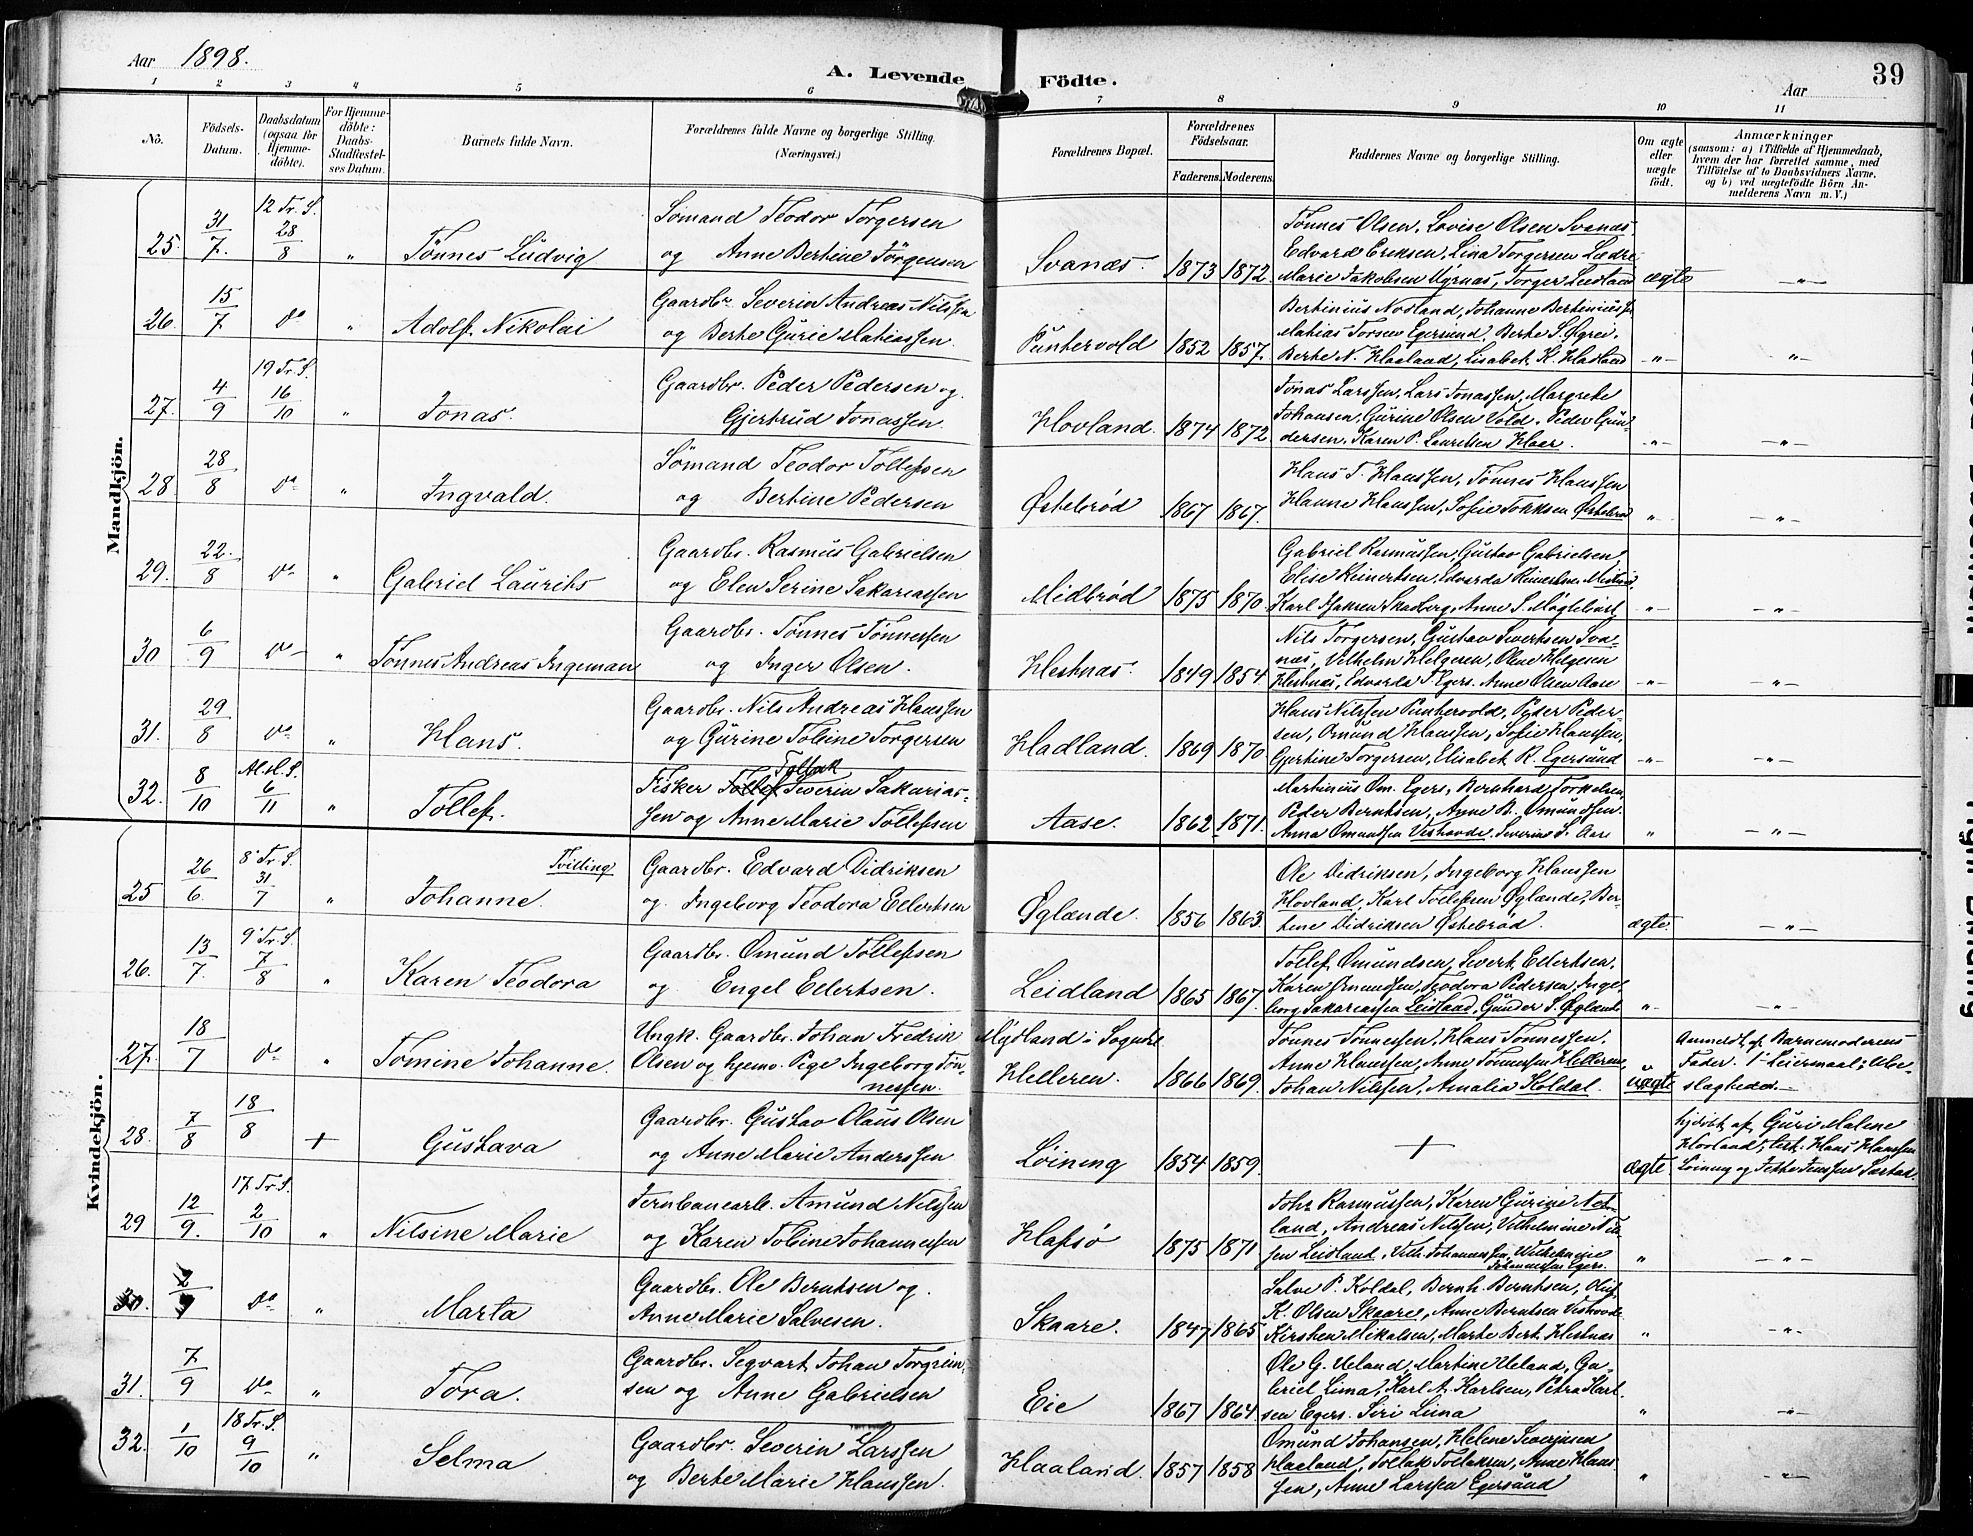 Aar 1898.
A. Levende Födte.
Aar
39
1 2 3 4 5 6 7 8 9 10 11
No.
Födsels-Datum.
Daabsdatum (ogsaa for Hjemme-döbte).
For Hjemme-döbte: Daabs-Stadfæstel-ses Datum.
Barnets fulde Navn.
Forældrenes fulde Navne og borgerlige Stilling. (Næringsvei.)
Forældrenes Bopæl.
Forældrenes Födselsaar.
Faderens. Moderens.
Faddernes Navne og borgerlige Stilling.
Om ægte eller uægte födt.
Anmærkninger
(saasom: a) i Tilfælde af Hjemmedaab, hvem der har forrettet samme, med Tilföielse af to Daabsvidners Navne, og b) ved uægtefödte Börn An-melderens Navn m. V.)
Mandkjön.
25. 31/7. 12 Tr. S. 28/8 " Tønnes Ludvig
Sømand Teodor Torgersen
og Anne Bertine Jörgensen
Svanæs. 1873 1872.
Tønnes Olsen, Lovise Olsen Svanæs.
Edvard Eriksen, Lina Torgersen Lædre
Marie Jakobsen Nyrnæs, Torger Leidland ægte -"-
26. 15/7. do " Adolf Nikolai
Gaardbr. Severin Andreas Nilssen
og Berte Gurie Matiassen.
Puntervold 1852 1857.
Bertinius Nodland, Johanne Bertiniuss.
Matias Torsen Egersund, Berte S. Øgrei.
Berte N. Haaland, Lisabet K. Hadland -"- -"-
27. 4/9 19 Tr. S. 16/10 " Jonas.
Gaardbr. Peder Pedersen og
Gjertrud Jonassen
Hovland. 1874 1872
Jonas Larssen, Lars Jonassen, Margrete
Johansen, Gurine Olsen Vold. Peder Gun-
dersen, Karen P. Lauritsen Haar. -"- -"-
28 28/8 do " Ingvald.
Sømand Teodor Tollefsen
og Bertine Pedersen
Østebrød 1867 1867.
Hans T. Hanssen, Tønnes Hanssen
Hanne Hanssen, Sofie Østebrød " -"-
29. 22./8 do " Gabriel Laurits
Gaardbr. Rasmus Gabrielsen
og Elen Serine Sakariassen
Midbrød 1875 1870.
Gabriel Rasmussen, Gustav Gabrielsen
Elise Reinertsen, Edvarda Reinertsen
Karl Isaksen Skadberg, Anne S. -"- -"-
30 6/9 do " Tønnes Andreas Ingeman
Gaardbr. Tønnes Tønnessen
og Inger Olsen.
Hestnæs. 1849 1854
Nils Torgersen, Gustav Sivertsen Sva-
næs, Vilhelm Helgesen, Olene Helgesen
Hestnæs, Edvarda T. Egers. Anne Olsen Aase -"- -"-
31. 29/8 do " Hans.
Gaardbr. Nils Andreas Hanssen
og Gurine Tobine Torgersen
Hadland. 1869 1870
Hans Nilssen Puntervold, Peder Peder-
sen, Omund Hanssen, Sofie Hanssen,
Gjertine Torgersen, Elisabet R. Egersund -"- -"-
32. 8/10 Al. H. S. 6/11 " Tollef.
Fisker Tollef Tollak Severin Sakarias-
sen og Anne Marie Tollefsen
Aase. 1862 1871.
Martinius Om. Egers, Bernhard Torkelsen
Peder Berntsen, Anne B. Omundsen.
Anna Omundsen Veshovde. Severine S. Aase " -"-
Kvindekjön.
25 26/6. 8' Tr. S. 31/7 " Johanne. Tvilling
Gaardbr. Edvard Didriksen
og Ingeborg Teodora Ellertsen
Øglænde. 1856 1863.
Ole Didriksen, Ingeborg Hanssen
Hovland, Karl Tollefsen Øglænde, Ber-
tine Didriksen Østebrød ægte. -"-
26. 13/7. 9' Tr. S. 7/8 " Karen Teodora
Gaardbr. Omund Tollefsen
og Engel Ellertsen.
Leidland 1865 1867.
Tollef Omundsen, Sivert Ellertsen,
Karen Omundsen, Teodora Pedersen, Inge-
borg Sakariassen Leidland, Gunder S. Øglænde " -"-
27. 18/7 do " Tomine Johanne.
Ungk. Gaardbr. Johan Fredrik
Olsen og hjemv. Pige Ingeborg Tøn-
nessen.
Mydland i Sogndal
Helleren. 1866 1869.
Tønnes Tønnessen, Hans Tønnessen,
Anne Hanssen, Anne Tønnessen Helleren,
Johan Nilssen, Amalia Koldal. uægte
Anmeldt af Barnemoderens
Fader. 1' Leiermaal;
28. 7/8 18/8 + Gustava
Gaardbr. Gustav Olaus Olsen
og Anne Marie Anderssen
Løining 1854 1859.
+ ægte
hjdøbt af Guri Malene
Hovland, test: Hans Hanssen
Løining og
29 12/9. 17. Tr. S. 2/10 " Nilsine Marie
Jernbanearb. Amund Nilssen
og Karen Tobine Johannessen
Hafsø 1875 1871
Johs Rasmussen, Karen Gurine Net-
land, Andreas Nilssen, Vilhelmine Nils-
sen Leidland, Vilh. Johannessen, Vilhelmine
Johannessen Egers. " -"-
30. 2/9 do " Marta
Gaardbr. Ole Berntsen og
Anne Marie Salvesen.
Skaare. 1847 1865
Salve P. Koldal, Bernh. Berntsen, Oluf
K. Olsen Skaare, Anne Berntsen Veshovde
Kirsten Mikalsen, Marte Bert. Hestnæs " -"-
31. 7/9 do " Tora.
Gaardbr. Segvart Johan Torgrim-
sen og Anne Gabrielsen
Eie 1867 1864
Ole G. Ueland, Martine Ueland, Ga-
briel Lima, Karl A. Karlsen, Petra Karl-
sen Egers. Siri Lima " -"-
32. 1/10 18 Tr. S. 9/10 " Selma
Gaardbr. Severin Larssen
og Berte Marie Hanssen.
Haaland. 1857 1858
Omund Johansen, Helene Severinsen
Haaland, Tollak Tollaksen, Anne Hans-
sen, Anne Larssen Egersund " -"-